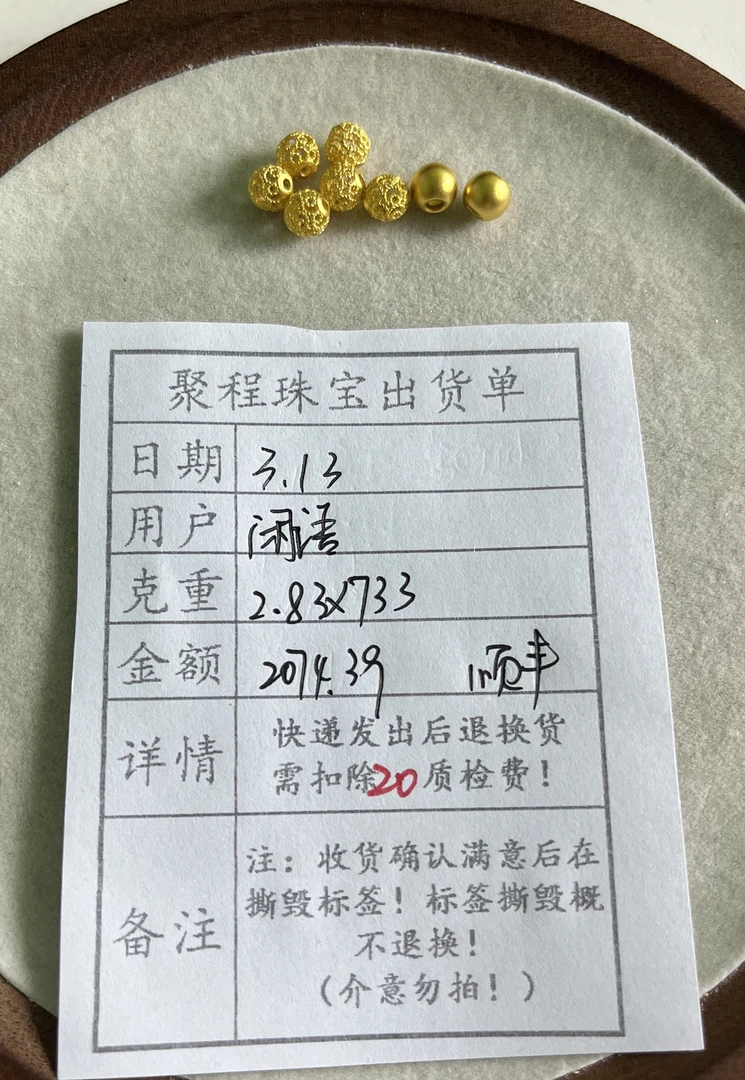 聚程珠宝出货单
日期 3.13
用户 闲语
克重 2.83x733
金额 2074.39 顺丰
详情 快递发出后退换货
需扣除20质检费！
备注 注：收货确认满意后在
撕毁标签！标签撕毁概
不退换！
（介意勿拍！）